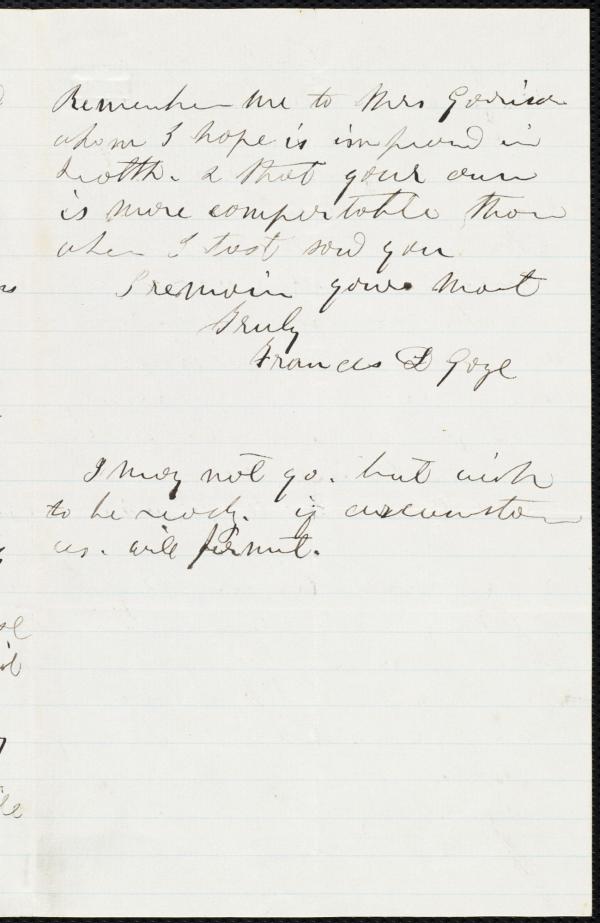 Remember me to Mrs Garrison
whom I hope is improved in
health. & that your own
is more comfortable than
when I last saw you
I remain yours most
Truly
Frances D Gage
I may not go. but wish
to be ready. if circumstan
ces. will permit.